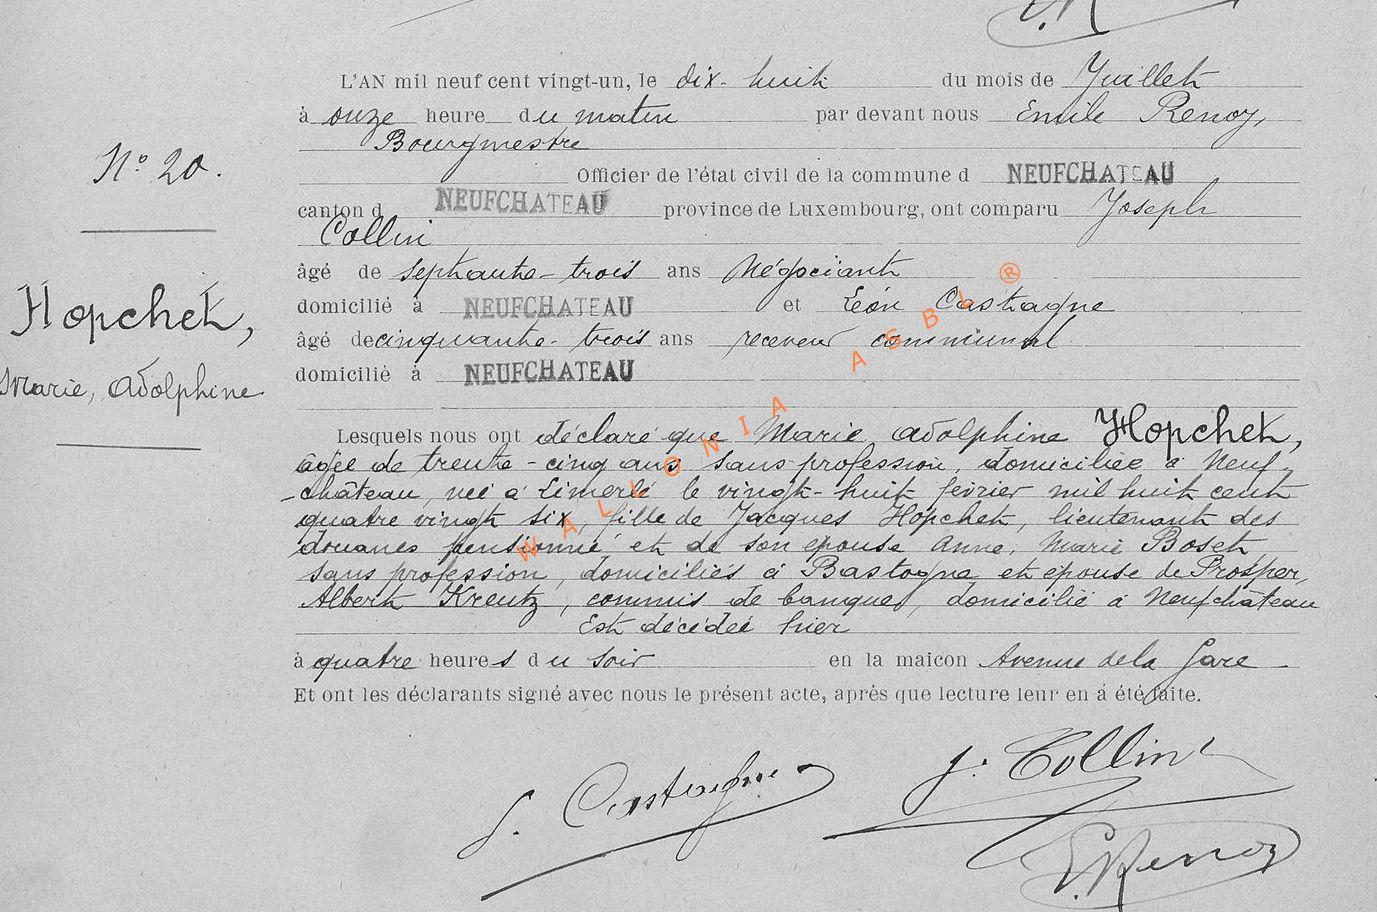 L'AN mil neuf cent vingt-un, le dix-huit du mois de Juillet
à onze heure du matin par devant nous Emile Renoy,
Bourgmestre
Nº 20.
Officier de l'état civil de la commune d NEUFCHATEAU
canton d NEUFCHATEAU province de Luxembourg, ont comparu Joseph
Collin
âgé de septante-trois ans Négociant
domicilié à NEUFCHATEAU et Léon Castagne
Hopchet,
âgé de cinquante-trois ans receveur communal
domicilié à NEUFCHATEAU
Marie, Adolphine
Lesquels nous ont déclaré que Marie Adolphine Hopchet,
âgée de trente-cinq ans sans profession, domiciliée à Neuf-
-château, née à Limerlé le vingt-huit février mil huit cent
quatre vingt six, fille de Jacques Hopchet, lieutenant des
douanes pensionné et de son épouse Anne, Marie Boset,
sans profession, domiciliés à Bastogne et épouse de Prosper,
Albert Kreutz, commis de banque, domicilié à Neufchâteau
Est décédée hier
à quatre heures du soir en la maicon Avenue de la Gare
Et ont les déclarants signé avec nous le présent acte, après que lecture leur en à été faite.
J. Collin
L. Castagne
E. Renoy
WALLONIA ASBL ®